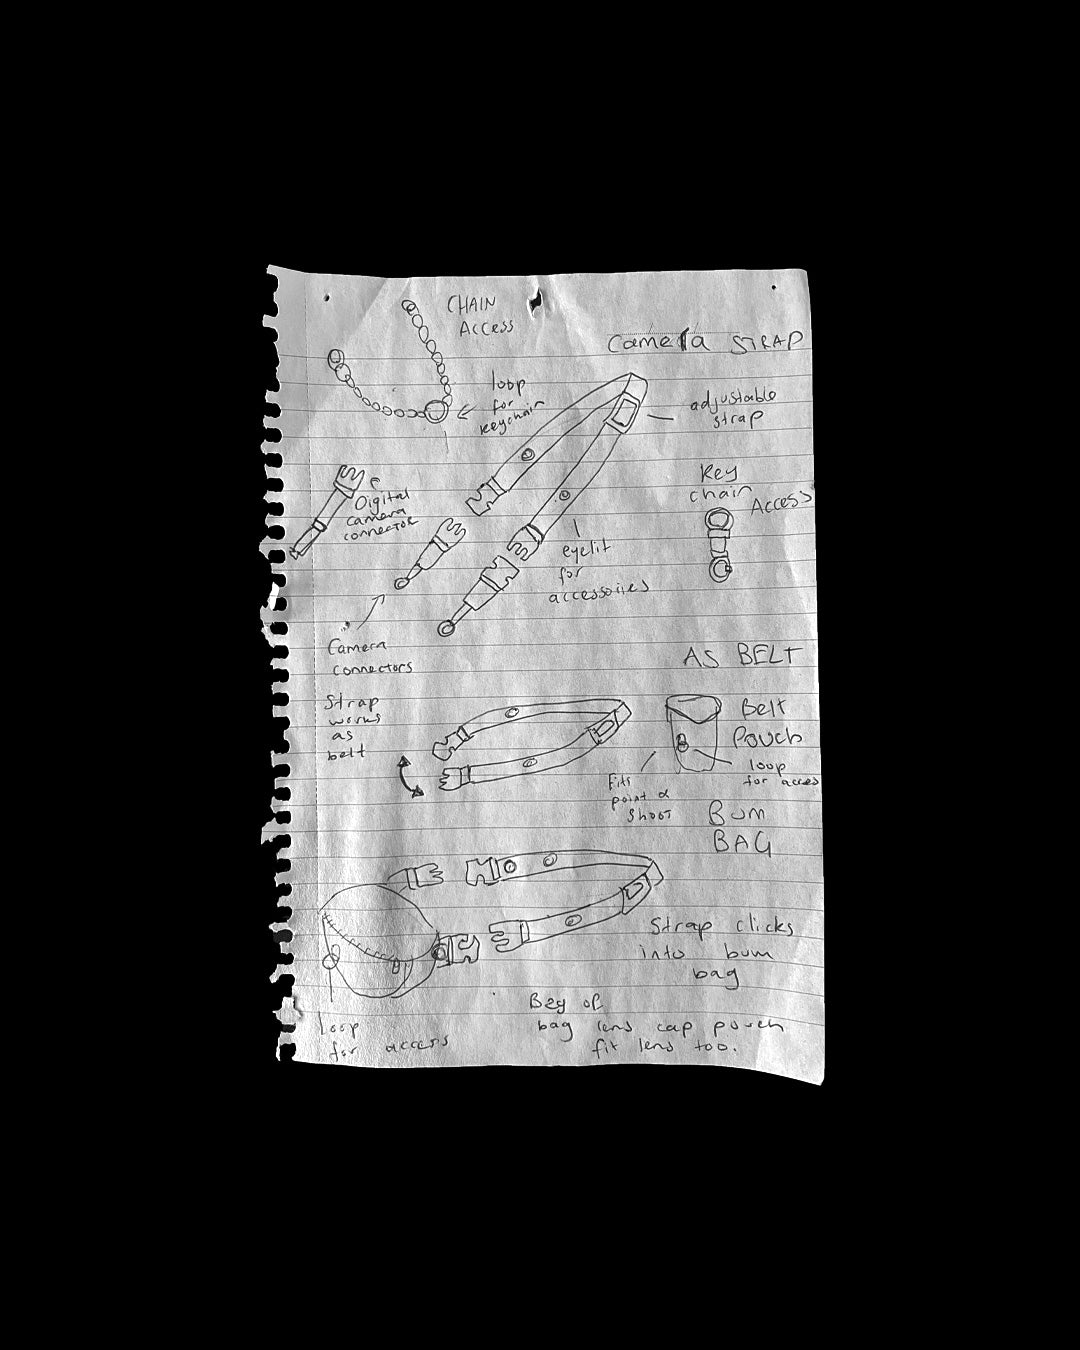 CHAIN
Access
Camera STRAP
loop
for
keychain
adjustable
strap
Key
chain
Access
Digital
camera
connector
eyelit
for
accessories
Camera
connectors
AS BELT
Strap
works
as
belt
Belt
Pouch
loop
for acces
Fits
point &
shoot
Bum
BAG
Strap clicks
into bum
bag
Loop
for access
of
bag lens cap pouch
fit lens too.